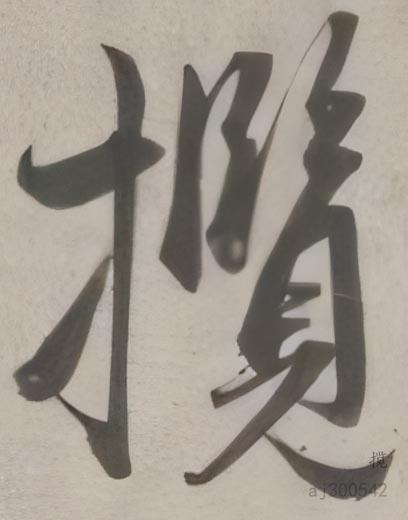 攬
aj300542